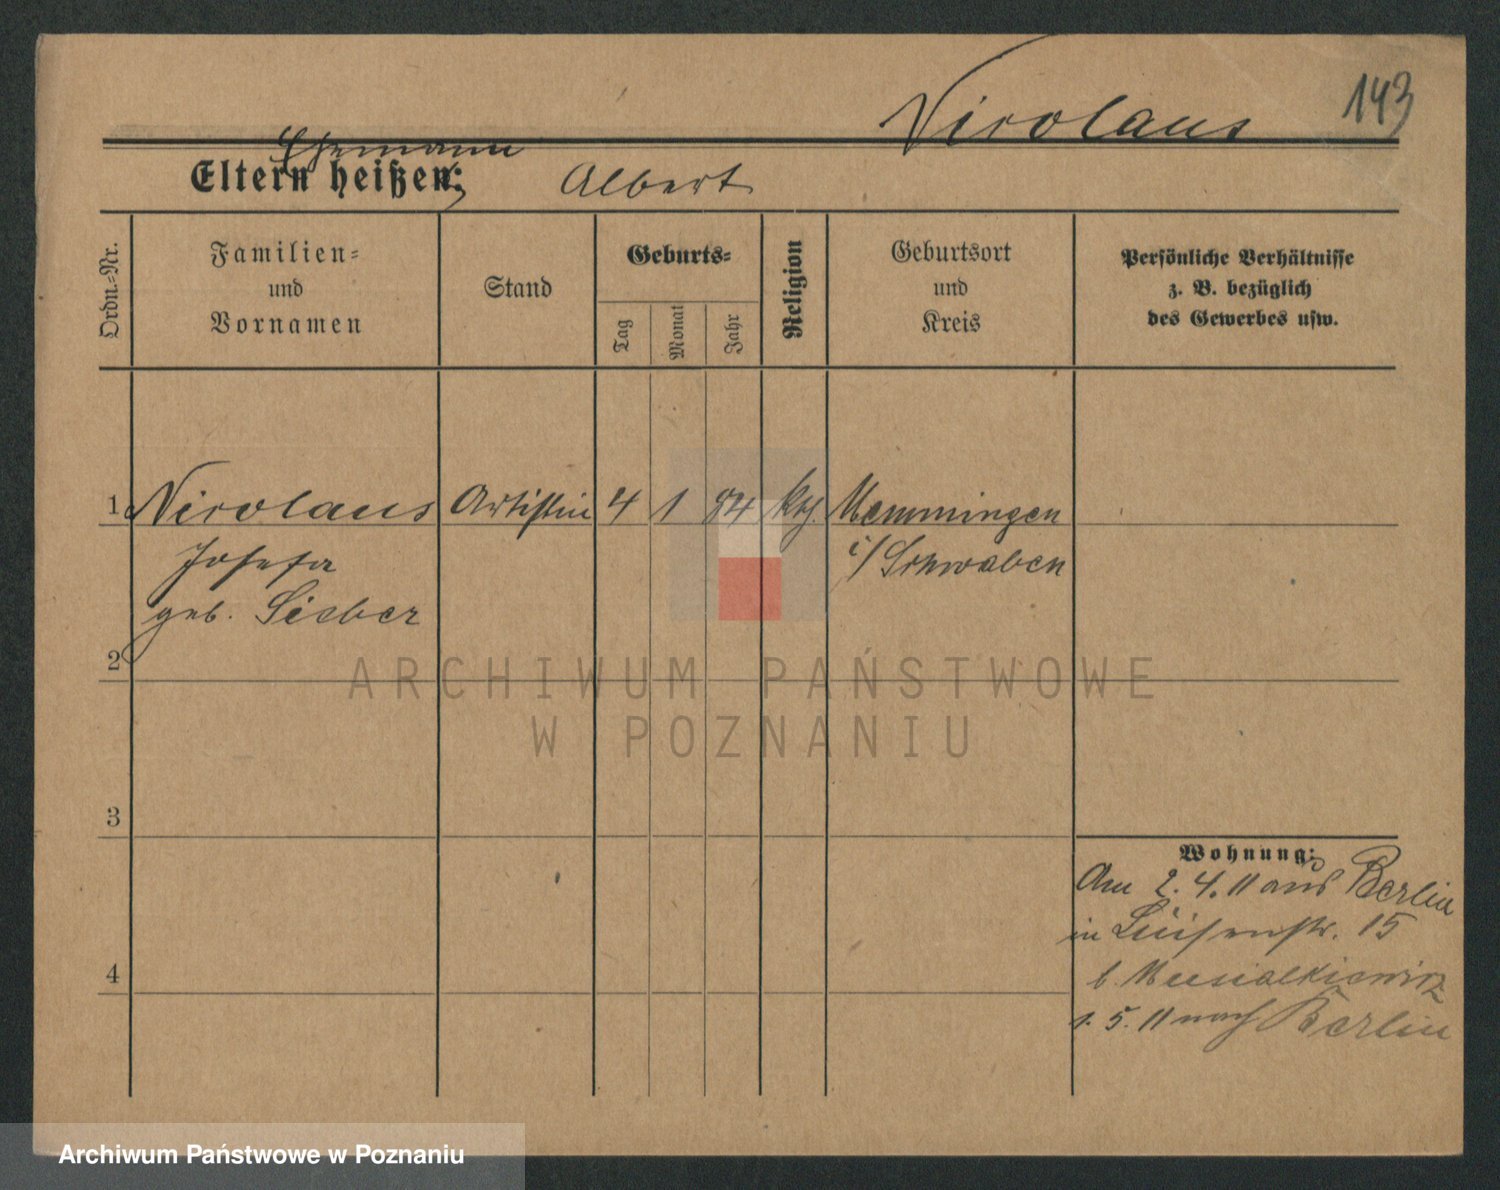 Nicolaus
143
Ehemann
Eltern heißen: Albert
Ordn.-Nr.
Familien-
und
Vornamen
Stand
Geburts-
Tag
Monat
Jahr
Religion
Geburtsort
und
Kreis
Persönliche Verhältnisse
z. B. bezüglich
des Gewerbes usw.
1 Nicolaus Artistin 4 1 84 kth. Memmingen
Josefa i/ Schwaben
geb. Sieber
2
ARCHIWUM PAŃSTWOWE
W POZNANIU
3
Wohnung:
Am 2. 4. 11 aus Berlin
in Luisenstr. 15
4
b.
1. 5. 11 nach Berlin
Archiwum Państwowe w Poznaniu